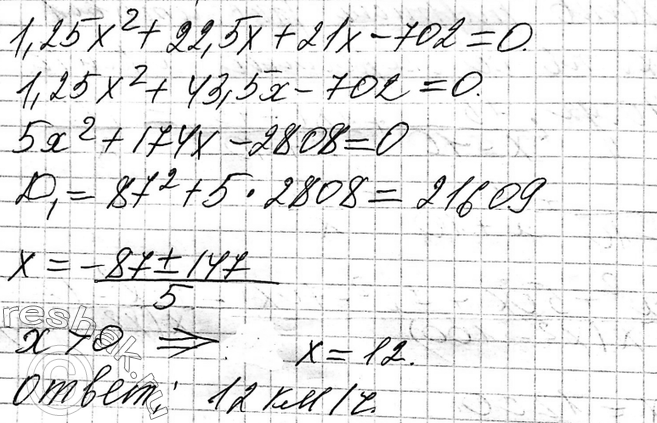 1,25x² + 22,5x + 21x - 702 = 0.
1,25x² + 43,5x - 702 = 0.
5x² + 174x - 2808 = 0
D₁ = 87² + 5 · 2808 = 21609
x = (-87 ± 147)/5
x > 0 ⇒ x = 12.
Ответ: 12 км/ч.
reshak.ru